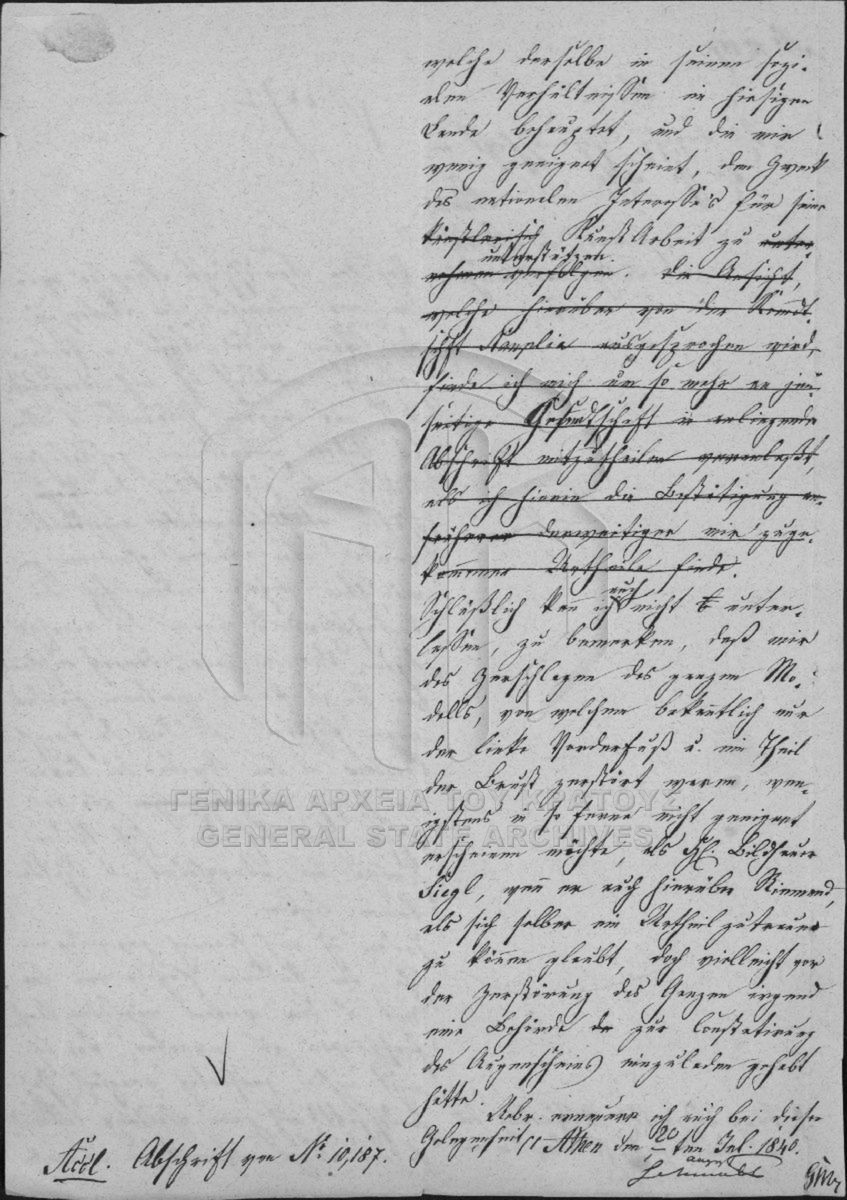 welche derselbe in seinen sozi-
alen Verhältnissen im hiesigen
Lande behauptet, und die mir
wenig geeignet scheint, den Zweck
des nationalen Interesse's für seine
künstlerisch Kunst Arbeit zu unter
unterstützen.
nehmen verfolgen. Die Ansicht,
welche hierüber von der
ausgesprochen wird,
finde ich mich um so mehr an jen-
seitige Gesandtschaft in anliegender
Abschrift mitzutheilen veranlaßt,
als ich hierin die Bestätigung
früherer derweitiger mir zuge-
kommener Urtheile finde.
auch
Schlüßlich kann ich nicht unter-
lassen, zu bemerken, daß mir
das Zerschlagen des ganzen Mo-
dells, von welchem bekanntlich nur
der linke Vorderfuß u. ein Theil
der Brust zerstört waren, wen-
igstens in so ferne nicht geeignet
erscheinen möchte, als H. Bildhauer
Siegl, wenn er auch hierüber Niemand,
als sich selber ein Urtheil zutrauen
zu können glaubt, doch vielleicht vor
der Zerstörung des Ganzen irgend
eine Behörde zur Constatirung
des Augenscheins einzuladen gehabt
hätte.
Uebr. erneuere ich auch bei dieser
Gelegenheit Athen den 20
ten Jul. 1840.
Abschrift von No. 10,187.
ΓΕΝΙΚΑ ΑΡΧΕΙΑ ΤΟΥ ΚΡΑΤΟΥΣ
GENERAL STATE ARCHIVES